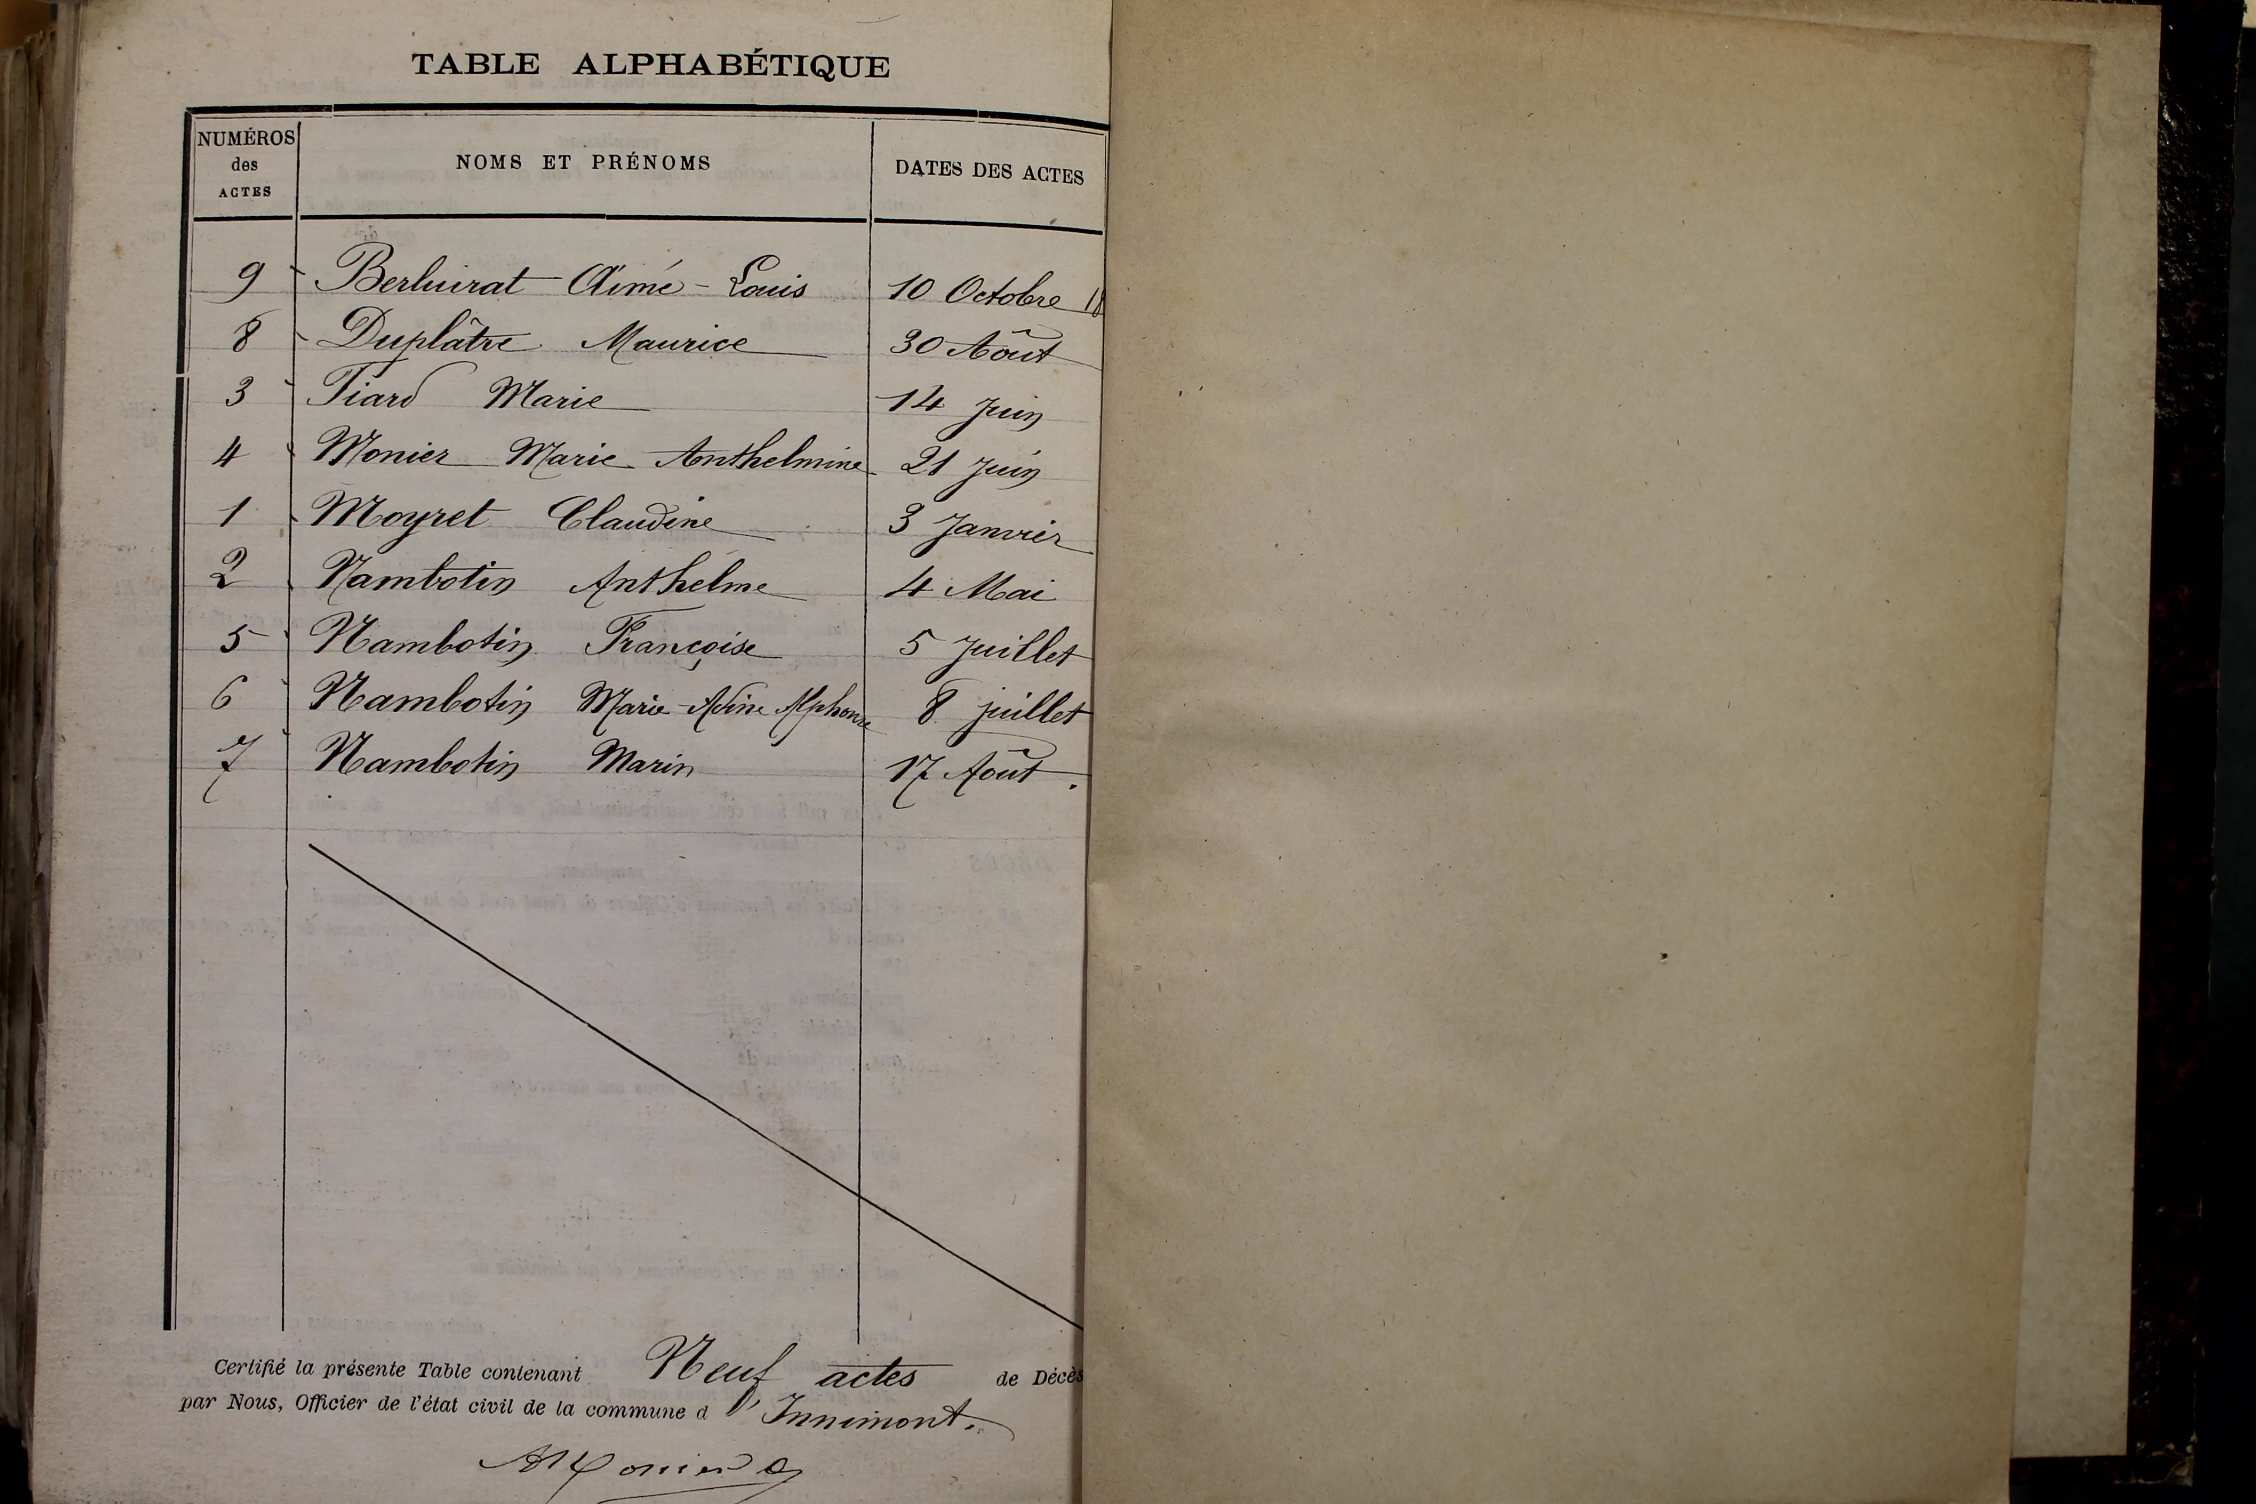 TABLE ALPHABÉTIQUE
NUMÉROS des ACTES NOMS ET PRÉNOMS DATES DES ACTES
9 Berluirat Aimé - Louis 10 Octobre 18
8 Duplâtre Maurice 30 Aôut
3 Tiard Marie 14 Juin
4 Monier Marie Anthelmine 21 Juin
1 Moyret Claudine 3 Janvier
2 Nambotin Anthelme 4 Mai
5 Nambotin Françoise 5 Juillet
6 Nambotin Marie Alphonse 8 juillet
7 Nambotin Marin 17 Aôut.
Certifié la présente Table contenant Neuf actes de Décès
par Nous, Officier de l'état civil de la commune d'Innimont.
AMonier